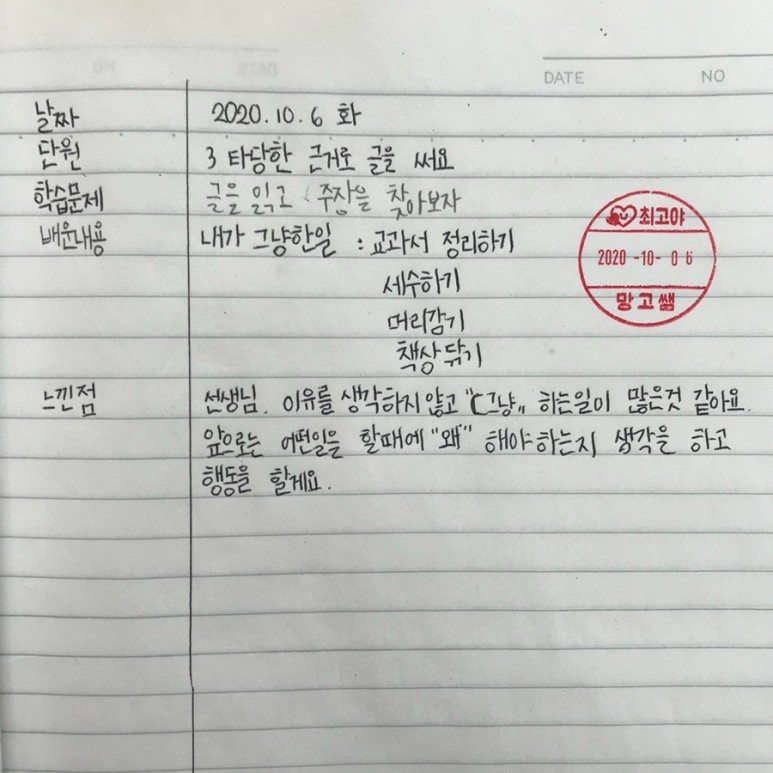 DATE NO
날짜 2020.10.6 화
단원 3 타당한 근거로 글을 써요
학습문제 글을 읽고 주장을 찾아보자
배운내용 내가 그냥한일 : 교과서 정리하기
세수하기
머리감기
책상 닦기
최고야
2020 -10- 0 6
망고쌤
느낀점 선생님. 이유를 생각하지 않고 "그냥" 하는일이 많은것 같아요.
앞으로는 어떤일을 할때에 "왜" 해야하는지 생각을 하고
행동을 할게요.